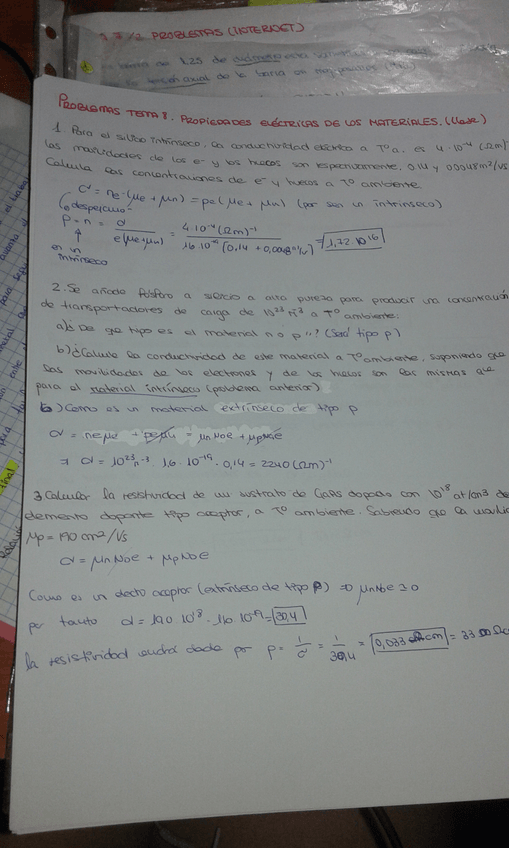 1 7/2 PROBLEMAS (INTERNET)
1.25 de diámetro
PROBLEMAS TEMA 8. PROPIEDADES ELÉCTRICAS DE LOS MATERIALES. (Clase)
1. Para el silicio intrínseco, la conductividad eléctrica a Tª a. es 4·10⁻⁴ (Ωm)⁻¹
las movilidades de los e⁻ y los huecos son respectivamente, 0.14 y 0.0048 m²/Vs
Calcula las concentraciones de e⁻ y huecos a Tª ambiente.
σ = n e (μe + μn) = pe (μe + μn) (por ser un intrínseco)
(despejamos
p = n = σ / e(μe+μn) = 4·10⁻⁴ (Ωm)⁻¹ / 1.6·10⁻¹⁹ (0.14 + 0.048 = 1,72·10¹⁶
↑
es un
intrínseco
2. Se añade fósforo a silicio a alta pureza para producir una concentración
de transportadores de carga de 10²³ n⁻³ a Tª ambiente.
a) ¿De que tipo es el material n o p? (Será tipo p)
b) ¿Calcula la conductividad de este material a Tª ambiente, suponiendo que
las movilidades de los electrones y de los huecos son las mismas que
para el material intrínseco (problema anterior)
b) Como es un material extrínseco de tipo p
σ = neμe + peμn = μnNDe + μpNae
⇒ σ = 10²³ n⁻³ · 1.6 · 10⁻¹⁹ · 0,14 = 2240 (Ωm)⁻¹
3. Calcular la resistividad de un sustrato de GaAs dopado con 10¹⁸ at/cm³ de
elemento dopante tipo aceptor, a Tª ambiente. Sabiendo que la
μp = 190 cm²/Vs
σ = μnNDe + μpNae
Como es un dopante aceptor (extrínseco de tipo P) ⇒ μnNDe = 0
por tanto σ = 190 · 10¹⁸ · 1.6 · 10⁻¹⁹ = 30,4
la resistividad vendrá dada por ρ = 1/σ = 1/30,4 = 0,033 Ωcm = 33